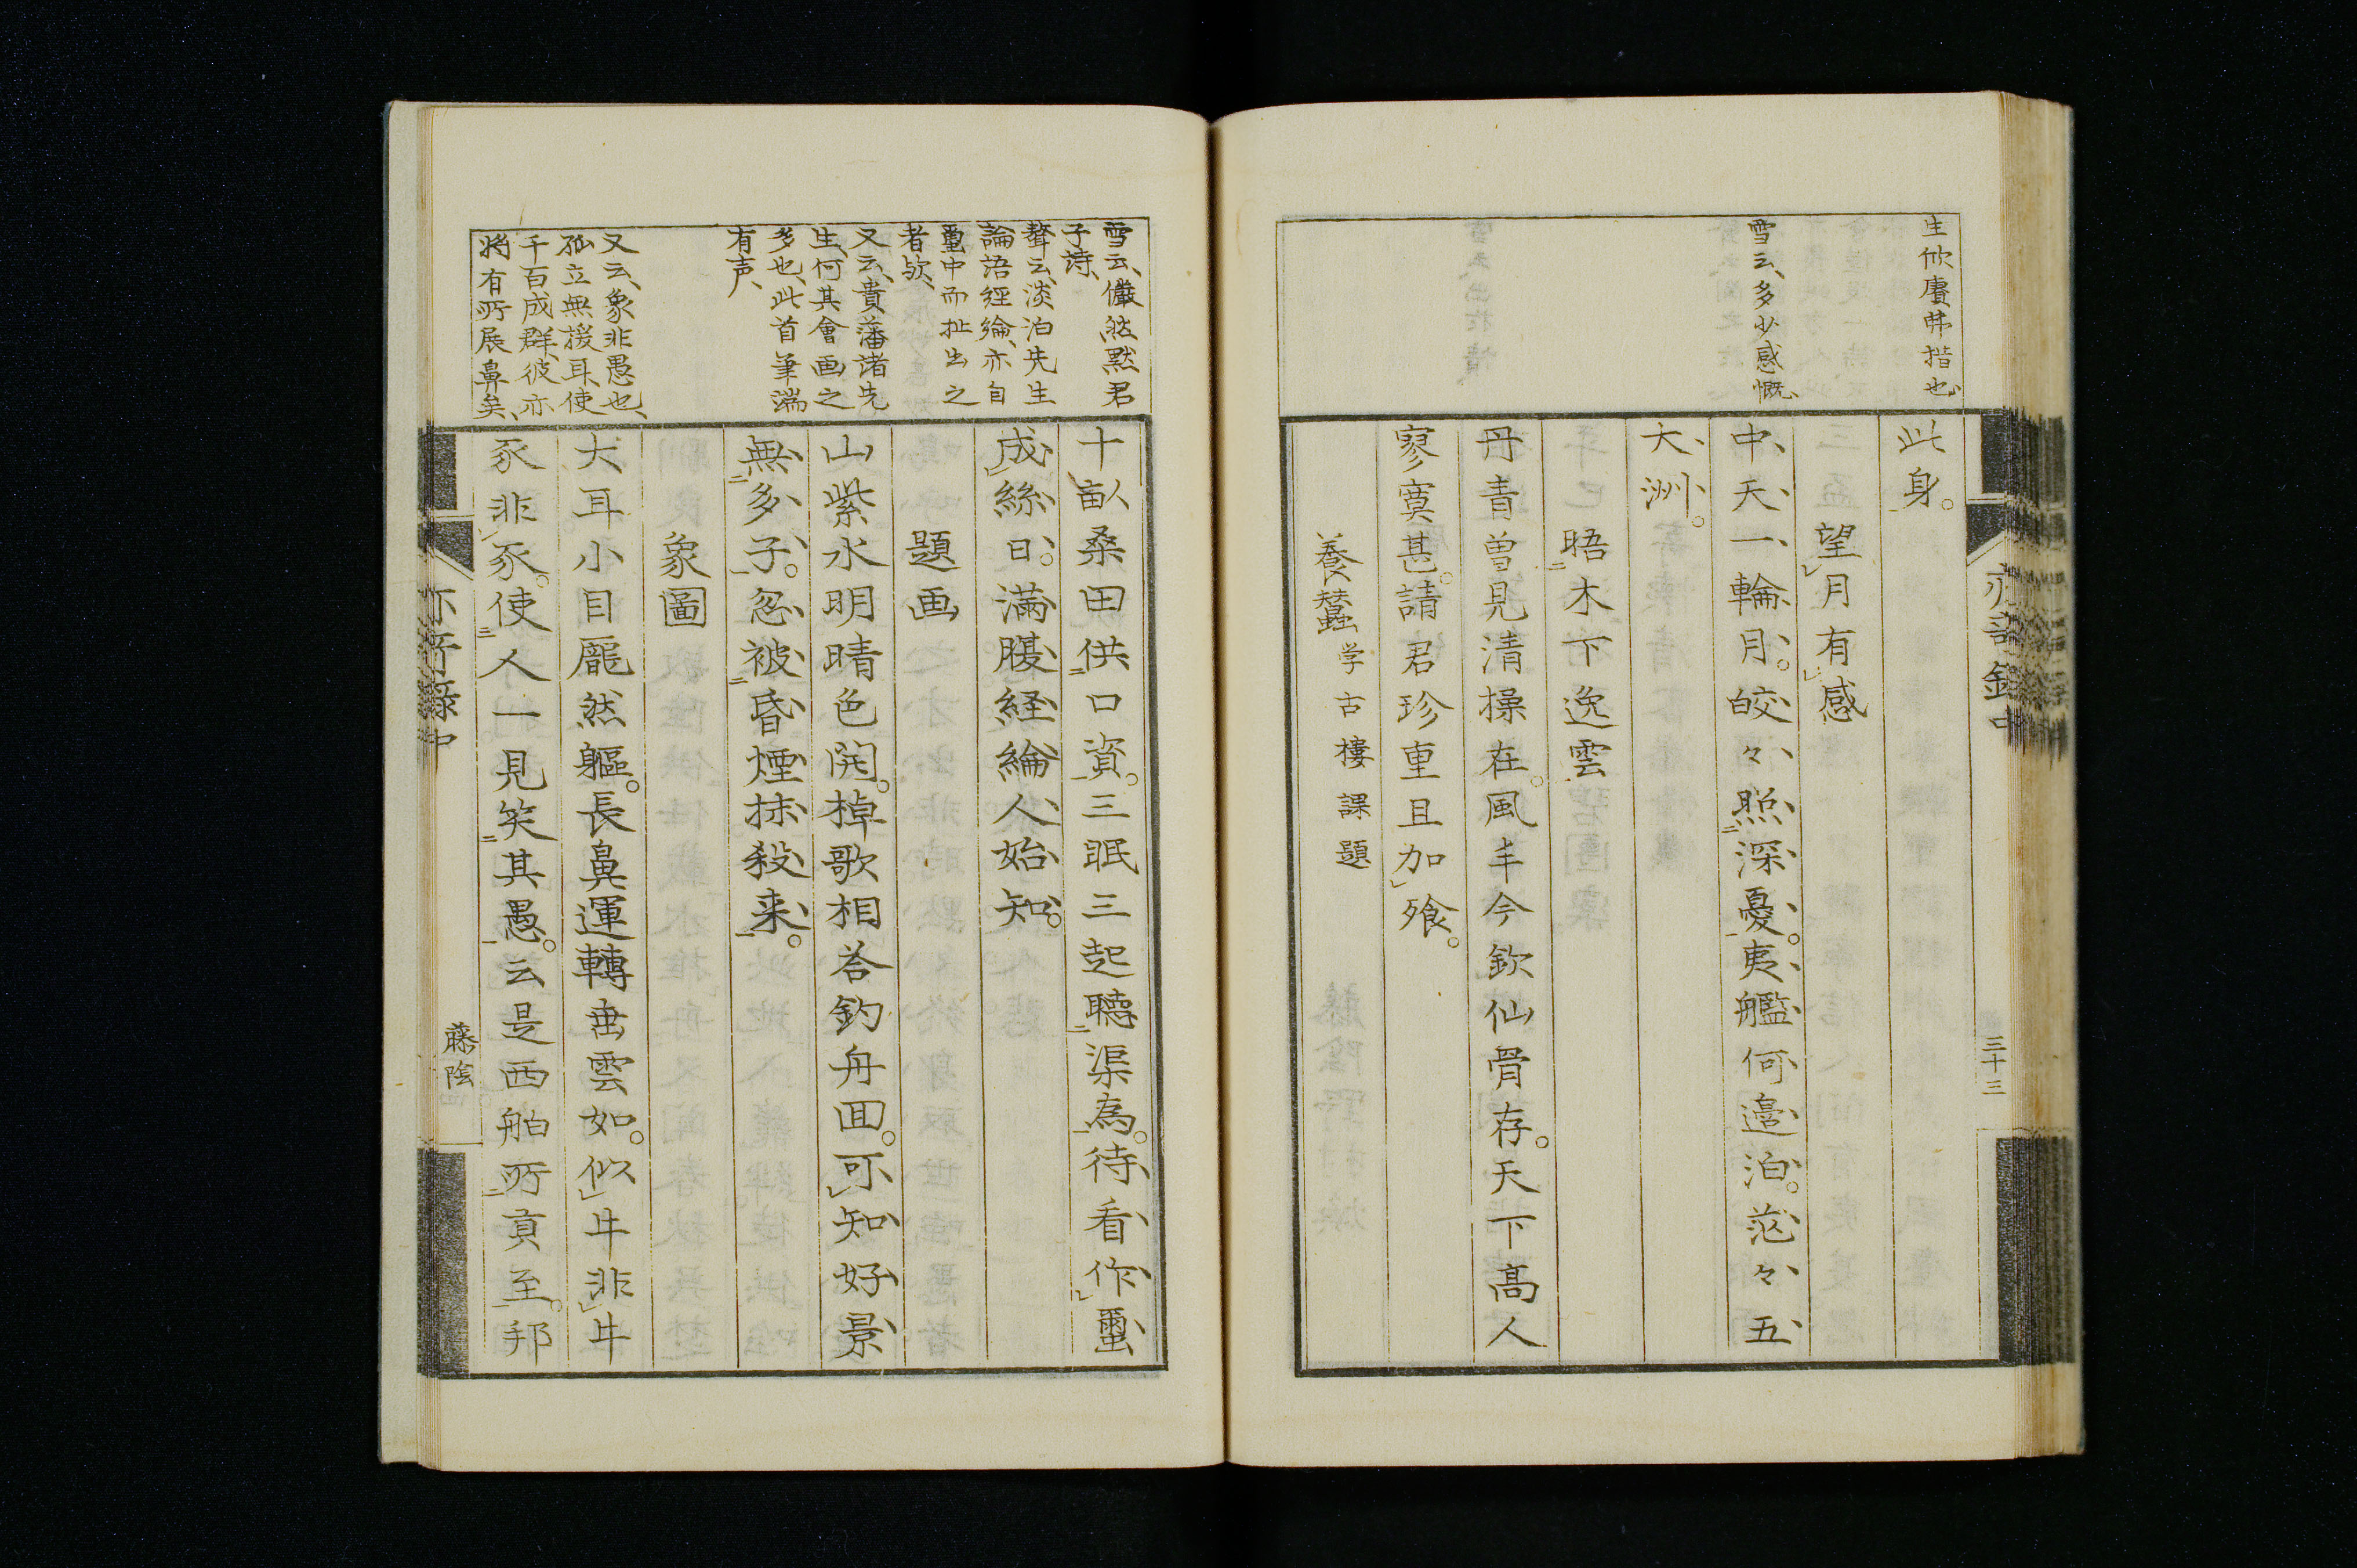 生欣賡弗措也、
雪云、多少感慨、
此身。
望月有感
中天一輪月。皎々照深憂。夷艦何邉泊。茫々五
大洲。
晤木下逸雲
丹青曽見清操在。風丰今欽仙骨存。天下高人
寥寞甚。請君珍重且加飱。
養蠶学古樓課題
亦奇録中
三十三
雪云、儼然黙君
子詩、
聱云、淡泊先生
論語經綸、亦自
蠒中而扯出之
者欤、
又云、貴藩諸先
生、何其會画之
多也、此首筆湍
有声、
又云、象非愚也、
孤立無援耳、使
千百成群、彼亦
将有所展鼻矣、
十畝桑田供口資。三眠三起聴渠為。待看作蠒
成絲日。満腹経綸人始知。
題画
山紫水明晴色開。棹歌相答釣舟囬。可知好景
無多子。忽被昏煙抹殺来。
象圖
大耳小目厖然軀。長鼻運轉垂雲如。似牛非牛
豕非豕。使人一見笑其愚。云是西舶所貢至。邦
亦奇録中
藤陰